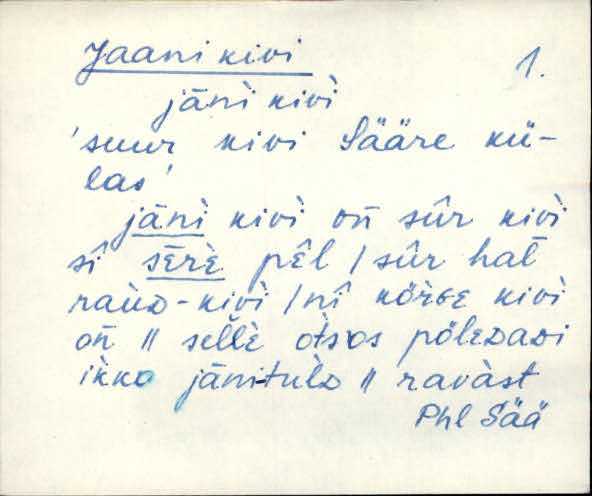 Jaani kivi 1.
jāni̬ kivì
'suur kivi Sääre kü-
las'
jāni̬ kivì on̄ sûr kivì
sî sērè pêl / sûr hal̄
raùᴅ-kivì / nî körɢe kivì
on̄ || sel̄lè òtsos põleᴅaᴅi
ikko jānitulᴅ || ravàst
Phl Sää